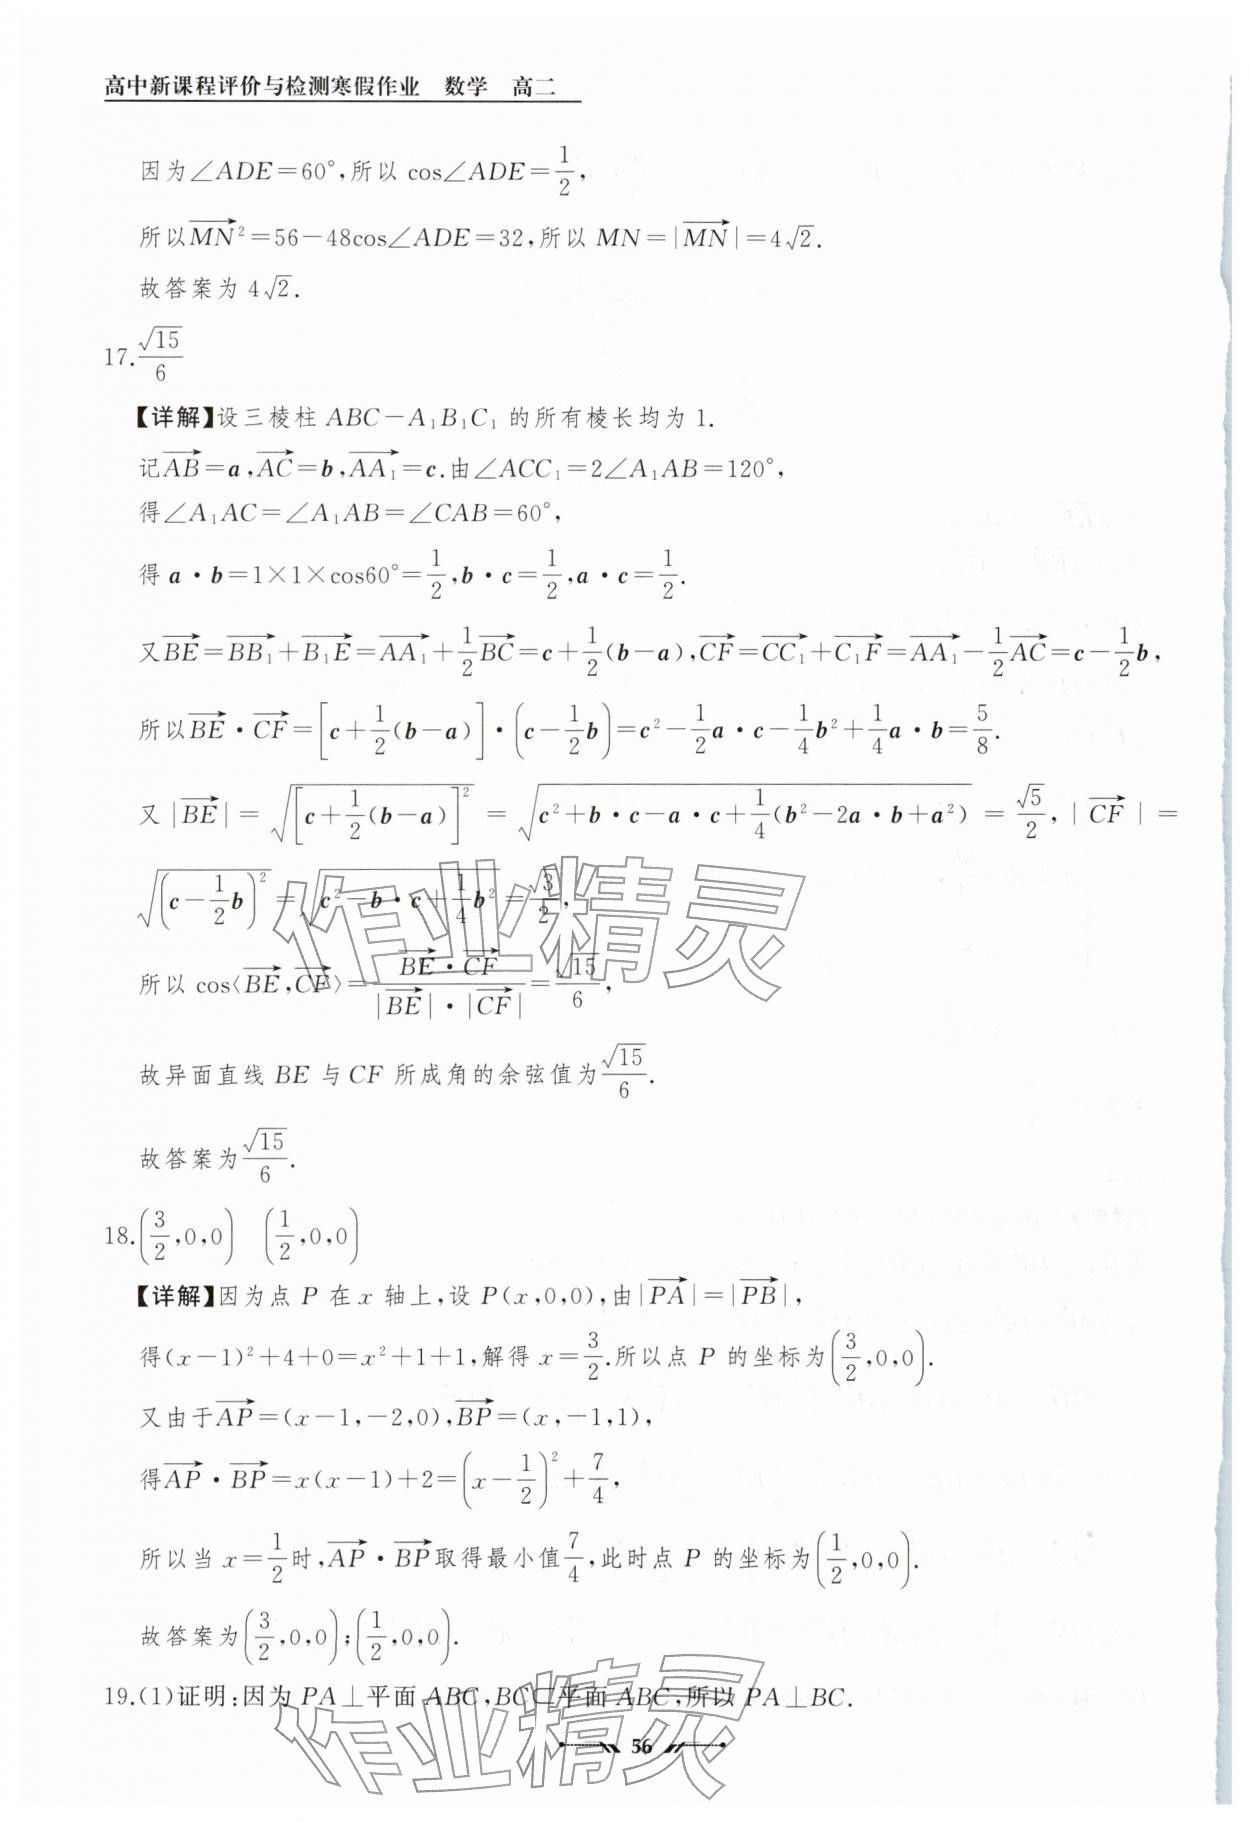 高中新课程评价与检测寒假作业 数学 高二
因为∠ADE=60°,所以 cos∠ADE=\frac{1}{2},
所以\overrightarrow{MN}^2=56-48cos∠ADE=32,所以 MN=|\overrightarrow{MN}|=4\sqrt{2}.
故答案为 4\sqrt{2}.
17.\frac{\sqrt{15}}{6}
【详解】设三棱柱 ABC-A_1B_1C_1 的所有棱长均为 1.
记\overrightarrow{AB}=a,\overrightarrow{AC}=b,\overrightarrow{AA_1}=c.由∠ACC_1=2∠A_1AB=120°,
得∠A_1AC=∠A_1AB=∠CAB=60°,
得 a·b=1×1×cos60°=\frac{1}{2},b·c=\frac{1}{2},a·c=\frac{1}{2}.
又\overrightarrow{BE}=\overrightarrow{BB_1}+\overrightarrow{B_1E}=\overrightarrow{AA_1}+\frac{1}{2}\overrightarrow{BC}=c+\frac{1}{2}(b-a),\overrightarrow{CF}=\overrightarrow{CC_1}+\overrightarrow{C_1F}=\overrightarrow{AA_1}-\frac{1}{2}\overrightarrow{AC}=c-\frac{1}{2}b,
所以\overrightarrow{BE}·\overrightarrow{CF}=[c+\frac{1}{2}(b-a)]·(c-\frac{1}{2}b)=c^2-\frac{1}{2}a·c-\frac{1}{4}b^2+\frac{1}{4}a·b=\frac{5}{8}.
又 |\overrightarrow{BE}| = \sqrt{[c+\frac{1}{2}(b-a)]^2} = \sqrt{c^2+b·c-a·c+\frac{1}{4}(b^2-2a·b+a^2)} = \frac{\sqrt{5}}{2}, |\overrightarrow{CF}| =
\sqrt{(c-\frac{1}{2}b)^2}=\sqrt{c^2-b·c+\frac{1}{4}b^2}=\frac{\sqrt{3}}{2},
所以 cos⟨\overrightarrow{BE},\overrightarrow{CF}⟩=\frac{\overrightarrow{BE}·\overrightarrow{CF}}{|\overrightarrow{BE}|·|\overrightarrow{CF}|}=\frac{\sqrt{15}}{6},
故异面直线 BE 与 CF 所成角的余弦值为\frac{\sqrt{15}}{6}.
故答案为\frac{\sqrt{15}}{6}.
18.(\frac{3}{2},0,0) (\frac{1}{2},0,0)
【详解】因为点 P 在 x 轴上,设 P(x,0,0),由|\overrightarrow{PA}|=|\overrightarrow{PB}|,
得(x-1)^2+4+0=x^2+1+1,解得 x=\frac{3}{2}.所以点 P 的坐标为(\frac{3}{2},0,0).
又由于\overrightarrow{AP}=(x-1,-2,0),\overrightarrow{BP}=(x,-1,1),
得\overrightarrow{AP}·\overrightarrow{BP}=x(x-1)+2=(x-\frac{1}{2})^2+\frac{7}{4},
所以当 x=\frac{1}{2}时,\overrightarrow{AP}·\overrightarrow{BP}取得最小值\frac{7}{4},此时点 P 的坐标为(\frac{1}{2},0,0).
故答案为(\frac{3}{2},0,0);(\frac{1}{2},0,0).
19.(1)证明:因为 PA⊥平面 ABC,BC⊂平面 ABC,所以 PA⊥BC.
56
作业精灵
作业精灵